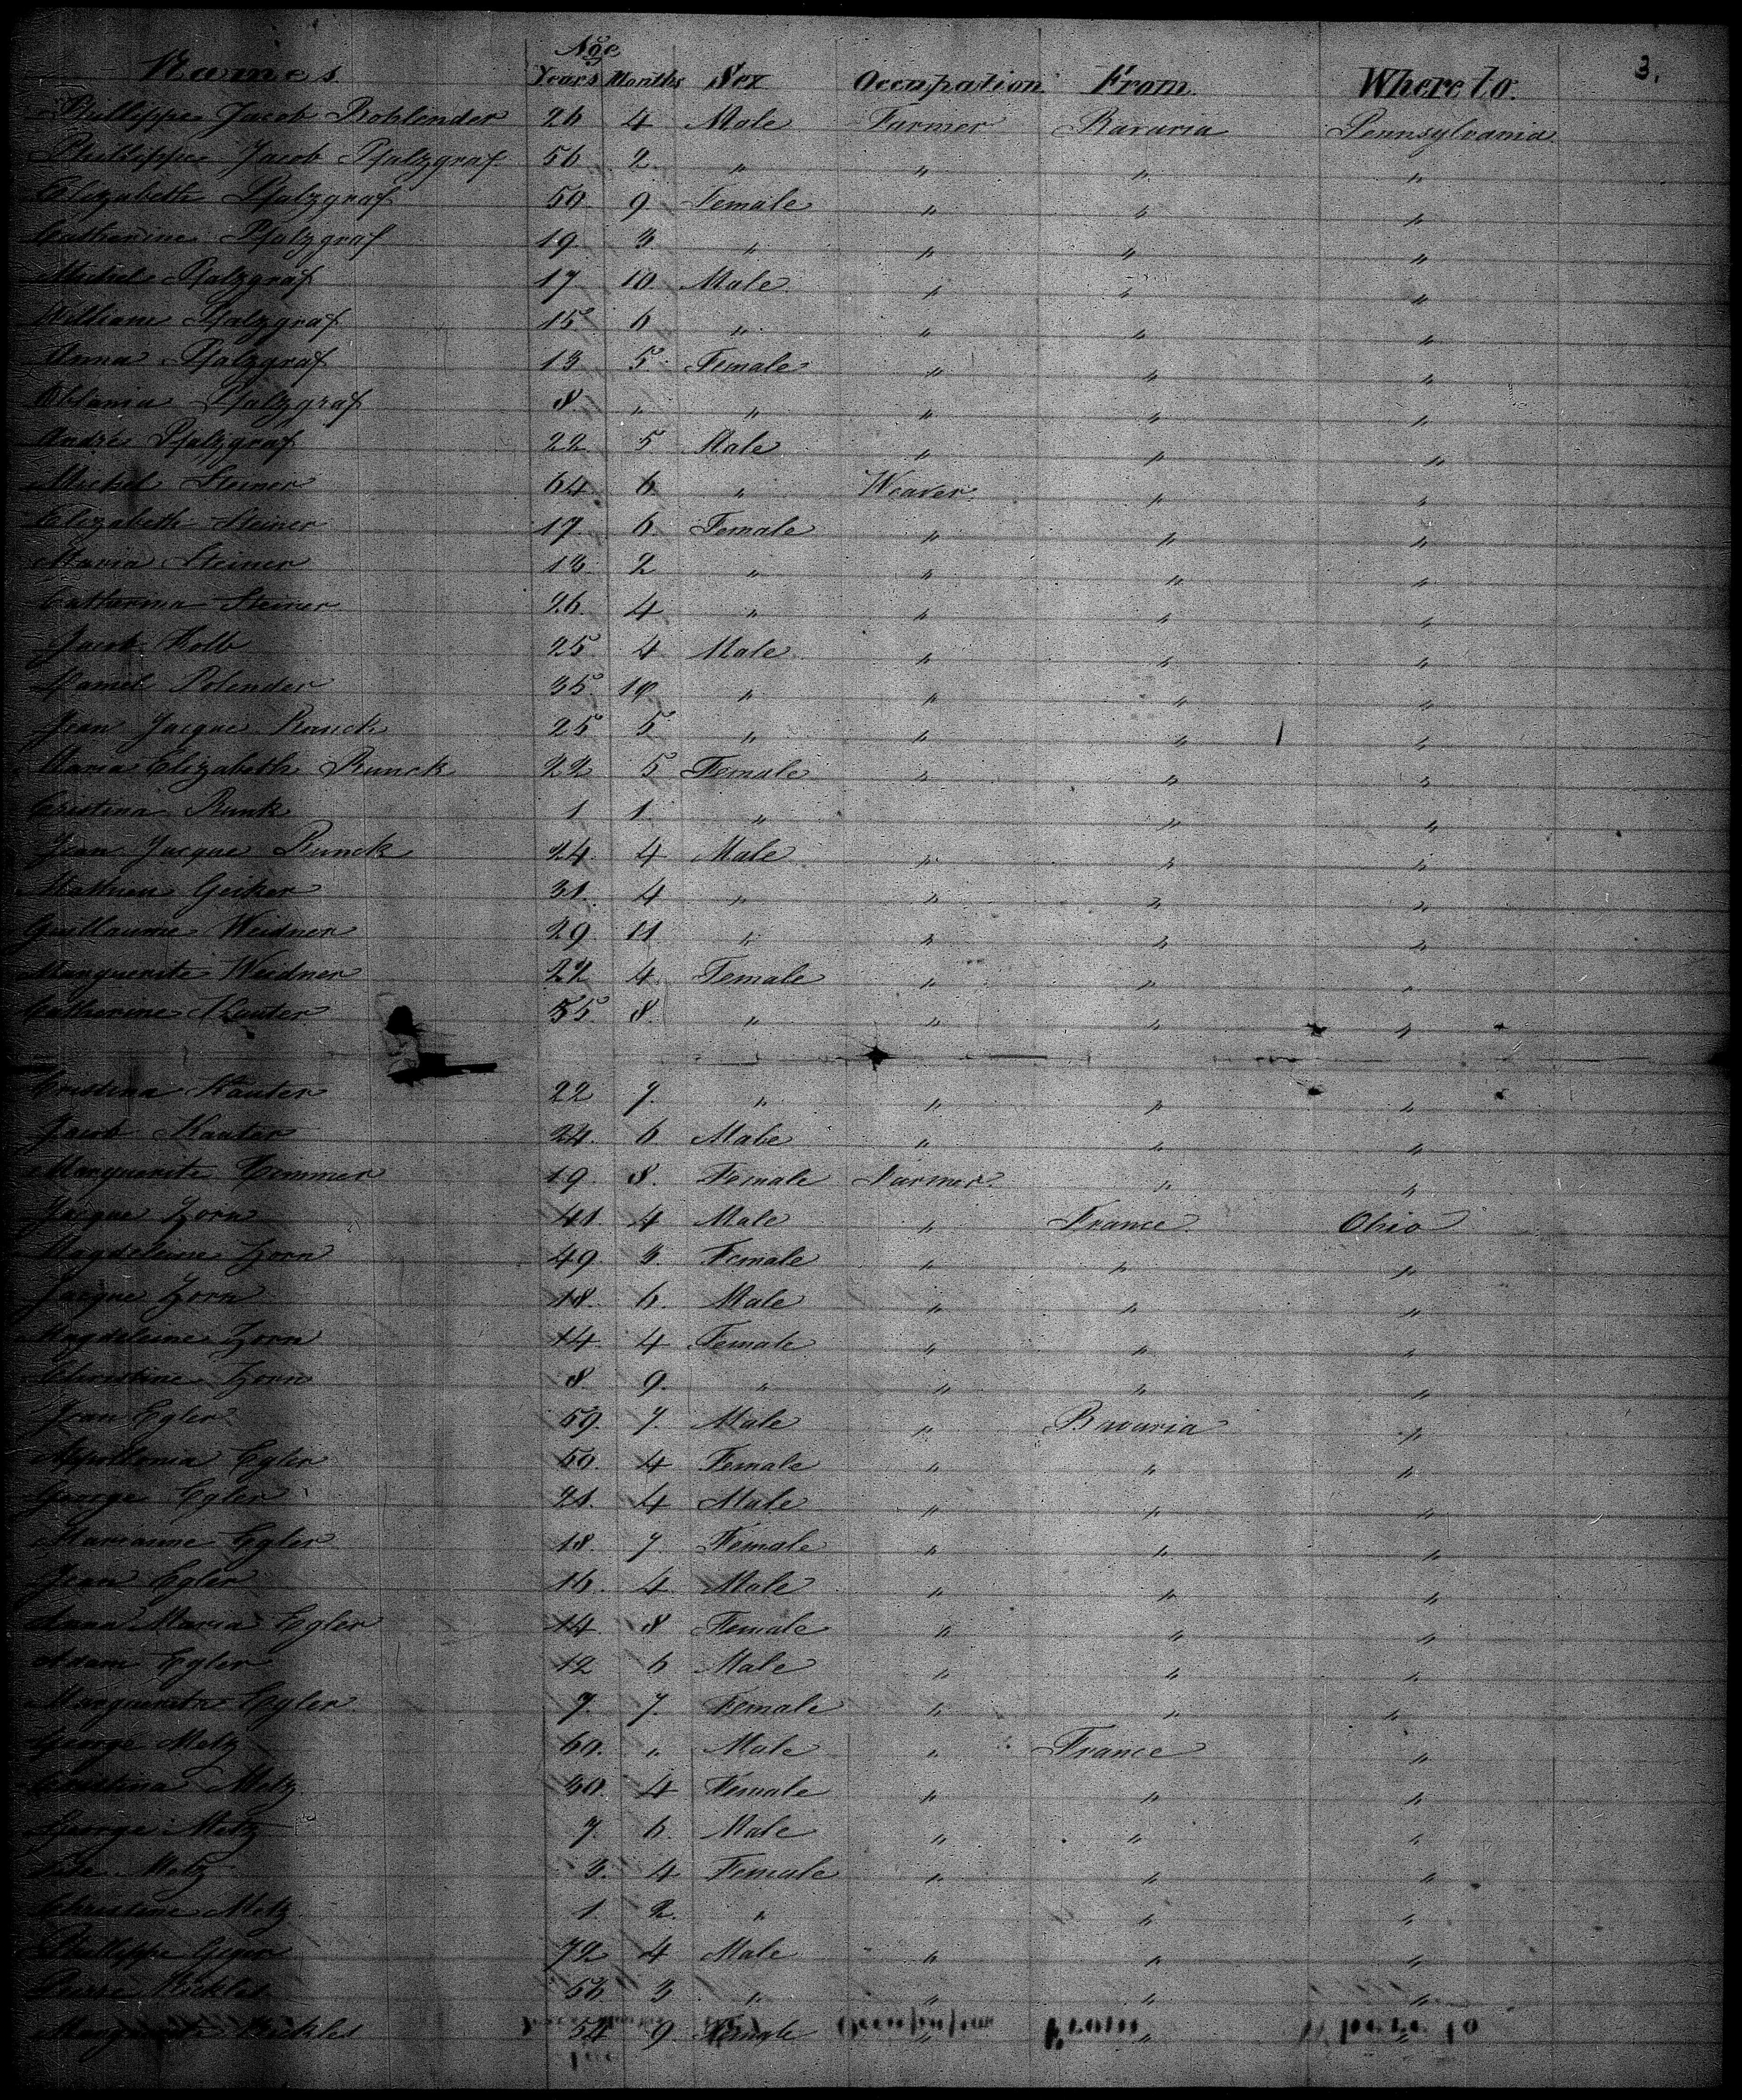 3.
Names Age Years Months Sex Occupation From Where to.
Phillippe Jacob Bohlender 26 4 Male Farmer Bavaria Pennsylvania
Phillippe Jacob Pfalzgraf 56 2 " " " "
Elizabeth Pfalzgraf 50 9 Female " " "
Catherine Pfalzgraf 19 3 " " " "
Michel Pfalzgraf 17 10 Male " " "
William Pfalzgraf 15 6 " " " "
Anna Pfalzgraf 13 5 Female " " "
Pfalzgraf 8 " " " " "
André Pfalzgraf 22 5 Male " " "
Michel Steiner 64 6 " Weaver " "
Elizabeth Steiner 17 6 Female " " "
Maria Steiner 13 2 " " " "
Catherina Steiner 26 4 " " " "
Jacob Kolb 25 4 Male " " "
Daniel Polender 35 10 " " " "
Jean Jacque Runck 25 5 " " " "
Maria Elizabeth Runck 22 5 Female " " "
Cristina Runk 1 1 " " "
Jean Jacque Runck 24 4 Male " " "
Mathieu Geiker 31 4 " " " "
Guillaume Weidner 29 11 " " " "
Marguerite Weidner 22 4 Female " " "
Catherine Kauter 55 8 " " " "
Cristina Kauter 22 7 " " " "
Jacob Kauter 24 6 Male " " "
Marguerite 19 8 Female Farmer " "
Jacque Zorn 41 4 Male " France Ohio
Magdeleine Zorn 49 3 Female " " "
Jacque Zorn 18 6 Male " " "
Magdeleine Zorn 14 4 Female " " "
Christine Zorn 8 9 " " " "
Jean Egler 59 7 Male " Bavaria "
Appollonia Egler 50 4 Female " " "
George Egler 21 4 Male " " "
Marianne Egler 18 7 Female " " "
Jean Egler 16 4 Male " " "
Anna Maria Egler 14 8 Female " " "
Adam Egler 12 6 Male " " "
Marguerite Egler 7 7 Female " " "
George Metz 60 " Male " France "
Cristina Metz 30 4 Female " " "
George Metz 7 6 Male " " "
Metz 3 4 Female " " "
Christine Metz 1 2 " " "
Phillippe Geyer 72 4 Male " " "
Pierre Nickles 56 3 " " " "
Marguerite Nickles 54 9 Female " " "